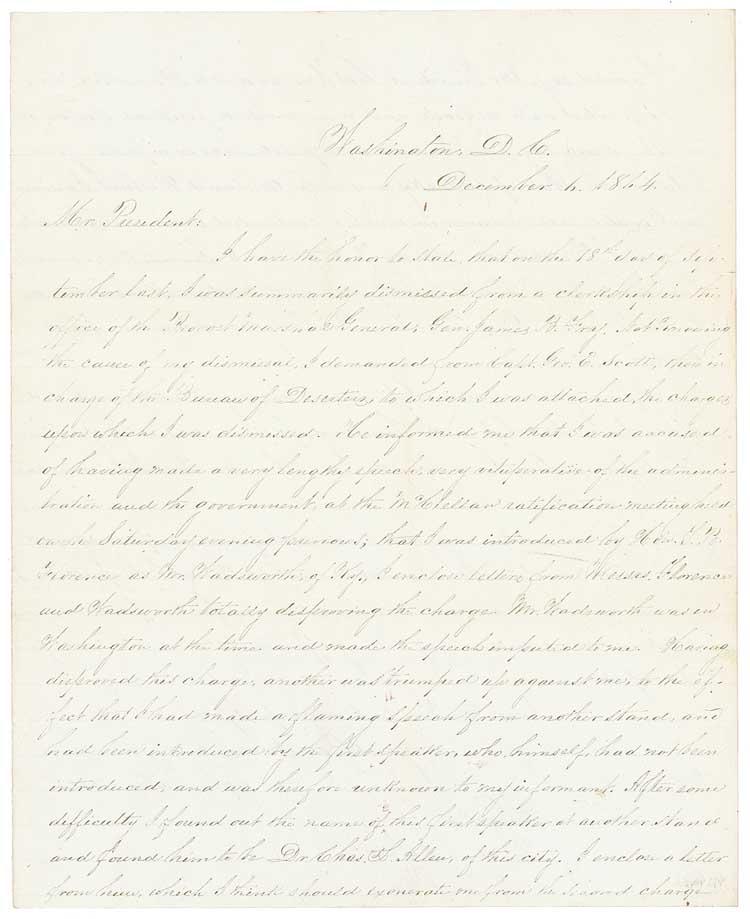 Washington, D. C.
December 6. 1864.
Mr President:
I have the honor to state, that on the 18th day of Sep-
tember last, I was summarily dismissed from a clerkship in the
office of the Provost Marshal General, Gen. James B. Fry. Not knowing
the cause of my dismissal, I demanded from Capt. Geo. E. Scott, then in
charge of the Bureau of Deserters, to which I was attached, the charges
upon which I was dismissed. He informed me that I was accused
of having made a very lengthy speech, very vituperative of the adminis-
tration and the government, at the McClellan ratification meeting held
on the Saturday evening previous; that I was introduced by Hon. T. B.
Florence as Mr. Wadsworth, of Ky. I enclose letters from Messrs. Florence
and Wadsworth totally disproving the charge. Mr. Wadsworth was in
Washington at the time and made the speech imputed to me. Having
disproved this charge, another was trumped up against me, to the ef-
fect that I had made a flaming speech from another stand, and
had been introduced by the first speaker, who, himself, had not been
introduced, and was therefore unknown to my informant. After some
difficulty I found out the name of this first speaker at another stand
and found him to be Dr. Chas. Allen, of this city. I enclose a letter
from him, which I think should exonerate me from the second charge